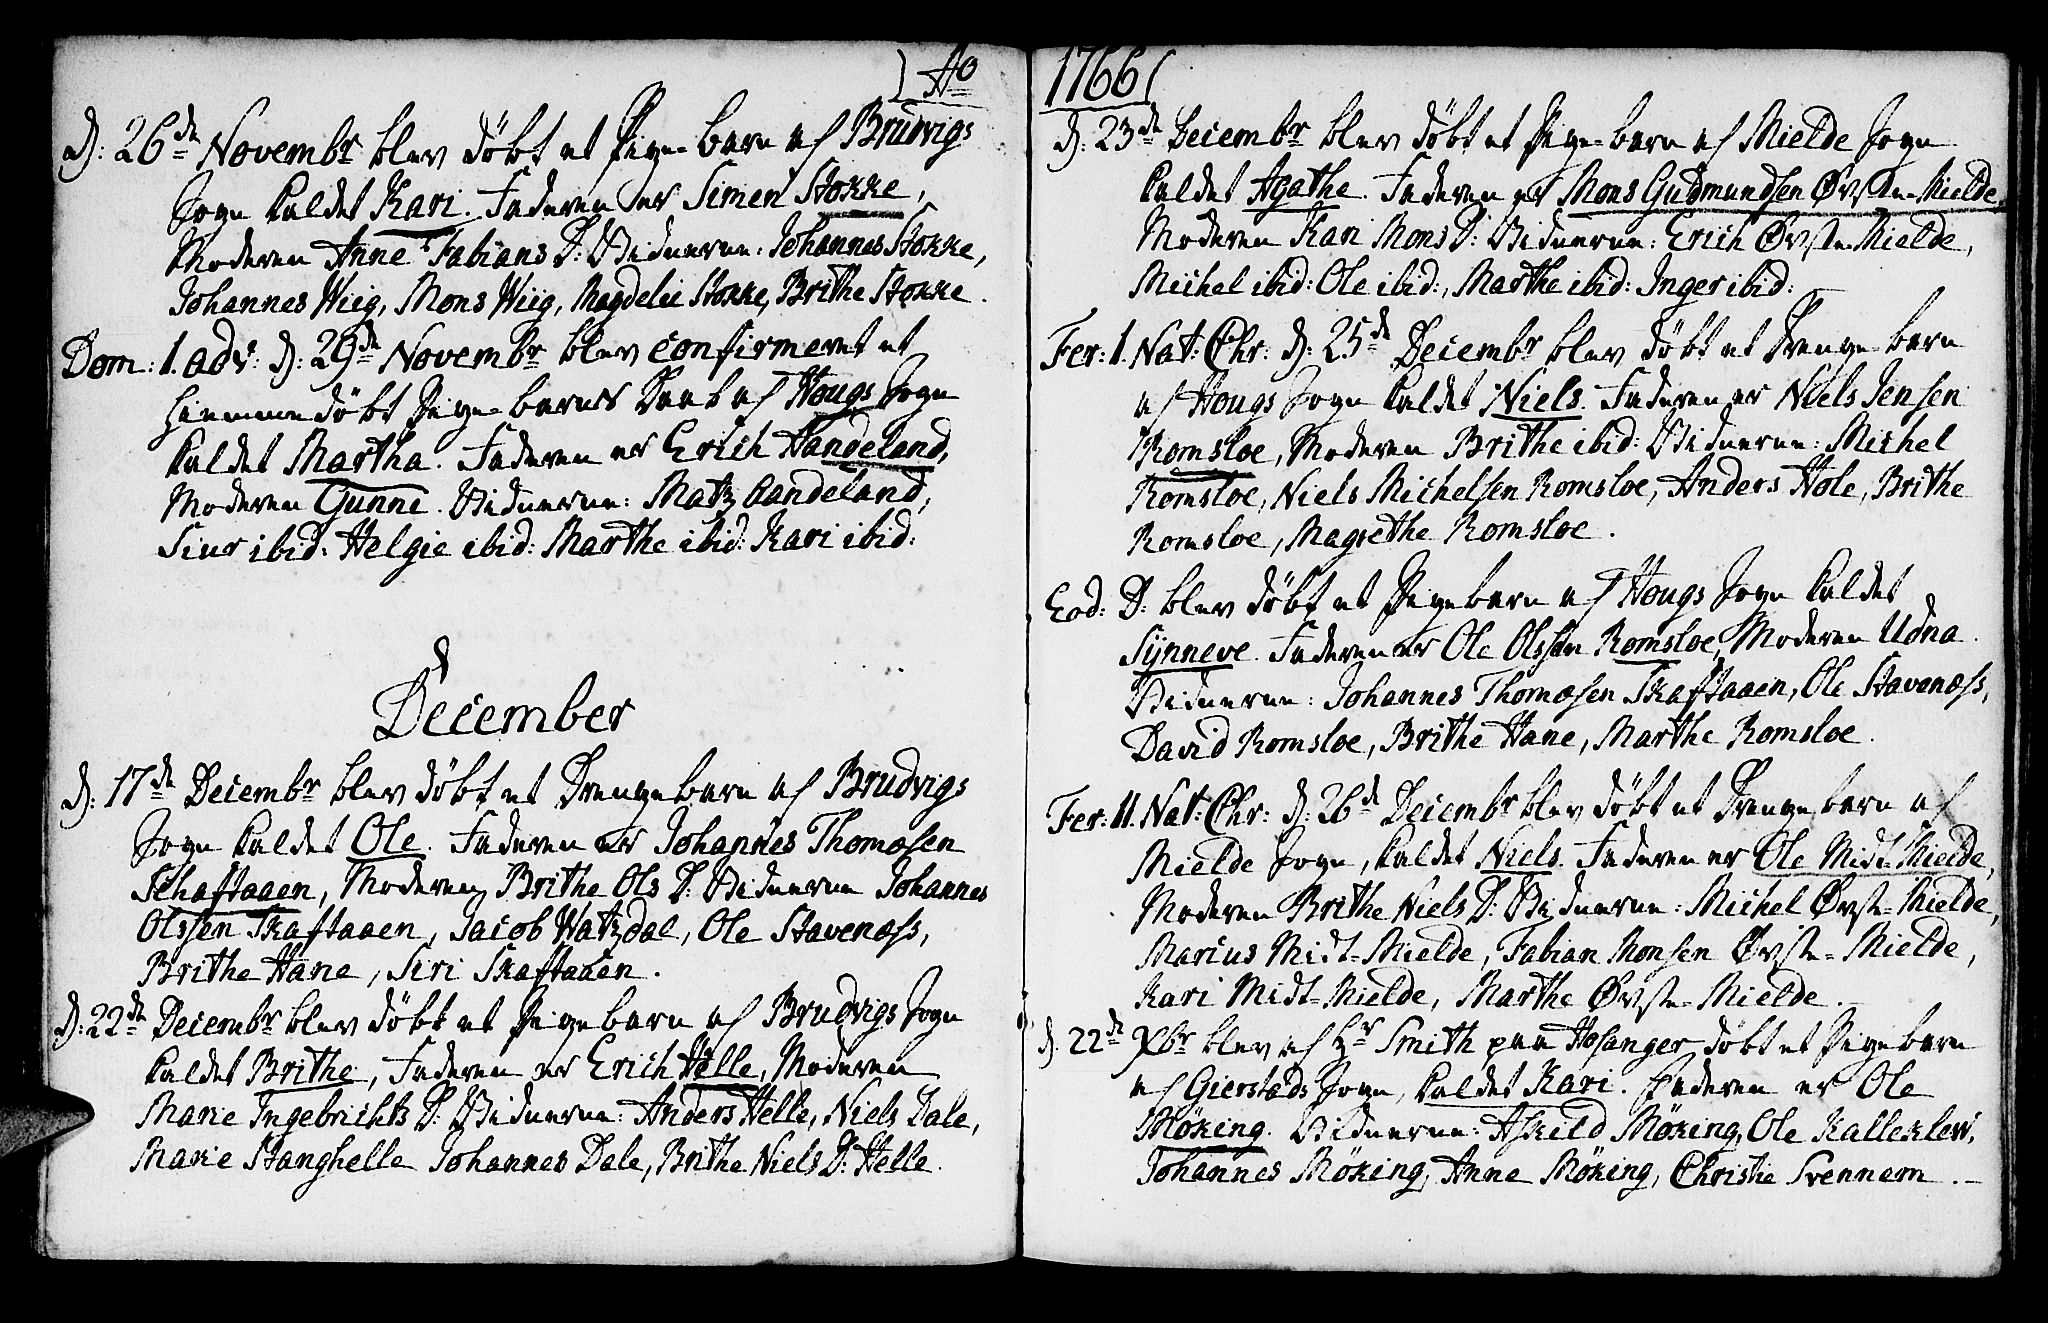 Ao
d: 26de Novembr blev døbt et Pige-barn af Brudvigs
Sogn kaldet Kari. Faderen er Simen Stokke,
Moderen Anne Fabians D: Vidnerne: Johannes Stokke,
Johannes Wiig, Mons Wiig, Magdeli Stokke, Brithe Stokke.
Dom: 1. adv: d: 29de Novembr blev confirmeret et
hiemmedøbt Pige-barns Daab af Hougs Sogn
kaldet Martha. Faderen er Erich Handeland,
Moderen Gunne. Vidnerne: Matz Handeland,
Siur ibid: Helgie ibid: Marthe ibid: Kari ibid:
December
d: 17de Decembr blev døbt et Drengebarn af Brudvigs
Sogn kaldet Ole. Faderen er Johannes Thomæsen
Schaftaaen, Moderen Brithe Ols D: Vidnerne Johannes
Olssen Skaftaaen, Jacob Watzdal, Ole Stavenæss,
Brithe Hane, Siri Skaftaaen.
d: 22de Decembr blev døbt et Pigebarn af Brudvigs Sogn
kaldet Brithe, Faderen er Erich Helle, Moderen
Marie Ingebrichts D: Vidnerne: Anders Helle, Niels Dale,
Marie Stanghelle Johannes Dale, Brithe Niels D: Helle.
1766
d: 23de Decembr blev døbt et Pige-barn af Mielde Sogn
kaldet Agathe. Faderen er Mons Gudmundsen Øvste-Mielde
Moderen Kari Mons D: Vidnerne: Erich Øvste-Mielde,
Michel ibid: Ole ibid:, Marthe ibid: Inger ibid:
Fer: 1. Nat: Chr: d: 25de Decembr blev døbt et Drenge-barn
af Hougs Sogn kaldet Niels. Faderen er Niels Jensen
Romsloe, Moderen Brithe ibid: Vidnerne: Michel
Romsloe, Niels Michelsen Romsloe, Anders Hole, Brithe
Romsloe, Magrethe Romsloe.
Eod: D: blev døbt et Pigebarn af Hougs Sogn kaldet
Sÿnneve. Faderen er Ole Olssen Romsloe, Moderen Udna.
Vidnerne: Johannes Thomæsen Skaftaaen, Ole Stavenæss,
David Romsloe, Brithe Hane, Marthe Romsloe.
Fer: 11. Nat: Chr: d: 26de Decembr blev døbt et Drengebarn af
Mielde Sogn, kaldet Niels. Faderen er Ole Midt-Mielde,
Moderen Brithe Niels D: Vidnerne: Michel Øvste-Mielde,
Marius Midt-Mielde, Fabian Monsen Øvste-Mielde,
Kari Midt-Mielde, Marthe Øvste-Mielde.
d. 22de Xbr blev af Hr Smith paa Hosanger døbt et Pigebarn
af Gierstads Sogn, kaldet Kari. Faderen er Ole
Møking. Vidnerne: Askild Møking, Ole Kalleklev,
Johannes Møking, Anne Møking, Christie Svennem.